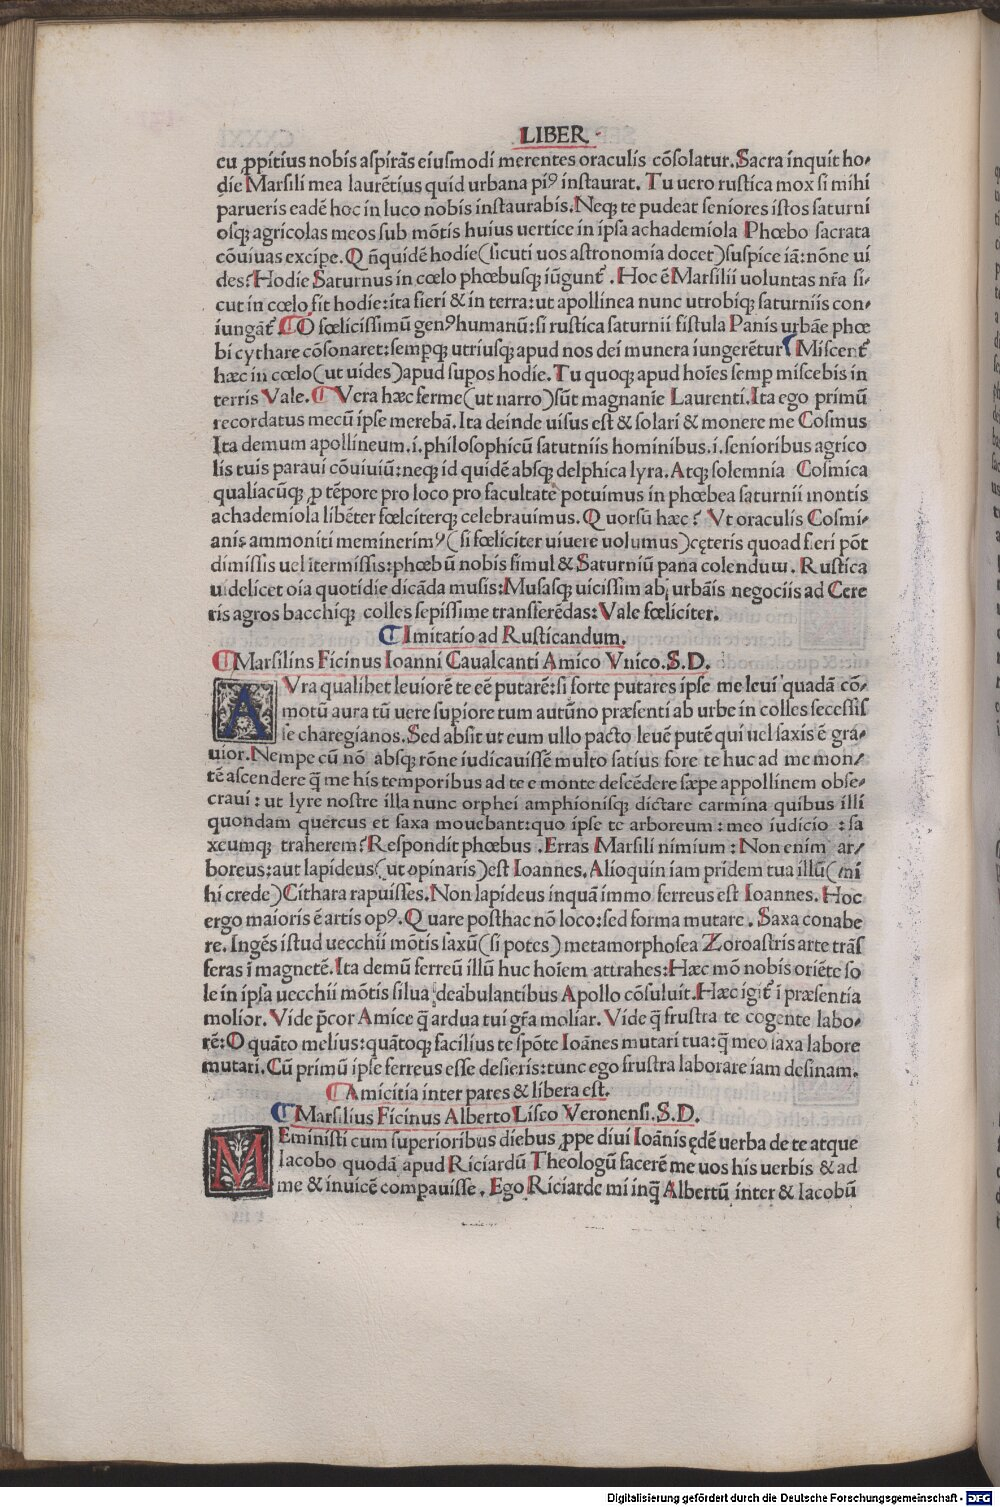 LIBER.
cu ꝓpitius nobis aspirãs eiusmodi merentes oraculis cõsolatur. Sacra inquit ho-
die Marsili mea laurẽtius quid urbana piꝰ instaurat. Tu uero rustica mox si mihi
parueris eadẽ hoc in luco nobis instaurabis. Neqꝫ te pudeat seniores istos saturni
osqꝫ agricolas meos sub mõtis huius uertice in ipsa achademiola Phœbo sacrata
cõuiuas excipe. Q ñquidẽ hodie (sicuti uos astronomia docet) suspice iã: nõne ui
des? Hodie Saturnus in cœlo phœbusqꝫ iũgunt̃. Hoc ẽ Marsilii uoluntas nr̃a si-
cut in cœlo fit hodie: ita fieri & in terra: ut apollinea nunc utrobiqꝫ saturniis con-
iungãt̃. ¶ O fœlicissimũ genꝰ humanũ: si rustica saturnii fistula Panis urbãe phœ
bi cythare cõsonaret: sempqꝫ utriusqꝫ apud nos dei munera iungerẽtur ¶ Miscent̃
hæc in cœlo (ut uides) apud supos hodie. Tu quoqꝫ apud hoĩes semp miscebis in
terris Vale. ¶ Vera hæc ferme (ut narro) sũt magnanie Laurenti. Ita ego primũ
recordatus mecũ ipse merebã. Ita deinde uisus est & solari & monere me Cosmus
Ita demum apollineum .i. philosophicũ saturniis hominibus .i. senioribus agrico
lis tuis paraui cõuiuiũ: neqꝫ id quidẽ absqꝫ delphica lyra. Atqꝫ solemnia Cosmica
qualiacũqꝫ ꝓ tẽpore pro loco pro facultate potuimus in phœbea saturnii montis
achademiola libẽter fœlciterqꝫ celebrauimus. Q uorsũ hæc? Vt oraculis Cosmi-
anis ammoniti meminerimꝰ (si fœliciter uiuere uolumus) cęteris quoad fieri põt
dimissis uel itermissis: phœbũ nobis simul & Saturniũ pana colendum. Rustica
uidelicet oĩa quotidie dicãda musis: Musasqꝫ uicissim ab urbãis negociis ad Cere
ris agros bacchiqꝫ colles sepissime transferẽdas: Vale fœliciter.
¶ Imitatio ad Rusticandum.
¶ Marsilins Ficinus Ioanni Caualcanti Amico Vnico. S. D.
AVra qualibet leuiorẽ te eẽ putarẽ: si forte putares ipse me leui quadã cõ-
motũ aura tũ uere supiore tum autũno præsenti ab urbe in colles secessis
se charegianos. Sed absit ut eum ullo pacto leuẽ putẽ qui uel saxis ẽ gra-
uior. Nempe cũ nõ absqꝫ rõne iudicauissẽ multo satius fore te huc ad me mon-
tẽ ascendere q̃ me his temporibus ad te e monte descẽdere sæpe appollinem obse-
craui: ut lyre nostre illa nunc orphei amphionisqꝫ dictare carmina quibus illi
quondam quercus et saxa mouebant: quo ipse te arboreum: meo iudicio: sa
xeumqꝫ traherem? Respondit phœbus. Erras Marsili nimium: Non enim ar-
boreus: aut lapideus (ut opinaris) est Ioannes. Alioquin iam pridem tua illũ (mi
hi crede) Cithara rapuisses. Non lapideus inquã immo ferreus est Ioannes. Hoc
ergo maioris ẽ artis opꝰ. Q uare posthac nõ loco: sed forma mutare. Saxa conabe
re. Ingẽs istud uecchii mõtis saxũ (si potes) metamorphosea Zoroastris arte trãs
feras ĩ magnetẽ. Ita demũ ferreũ illũ huc hoĩem attrahes: Hæc mõ nobis oriẽte so
le in ipsa uecchii mõtis silua deãbulantibus Apollo cõsuluit. Hæc igit̃ ĩ præsentia
molior. Vide p̃cor Amice q̃ ardua tui gr̃a moliar. Vide q̃ frustra te cogente labo-
rẽ: O quãto melius: quãtoqꝫ facilius te spõte Ioãnes mutari tua: q̃ meo saxa labore
mutari. Cũ primũ ipse ferreus esse desieris: tunc ego frustra laborare iam desinam.
¶ Amicitia inter pares & libera est.
¶ Marsilius Ficinus Alberto Lisco Veronensi. S. D.
MEministi cum superioribus diebus ꝓpe diui Ioãnis ędẽ uerba de te atque
Iacobo quodã apud Riciardũ Theologũ facerẽ me uos his uerbis & ad
me & inuicẽ compauisse. Ego Riciarde mi inq̃ Albertũ inter & Iacobũ
Digitalisierung gefördert durch die Deutsche Forschungsgemeinschaft - DFG